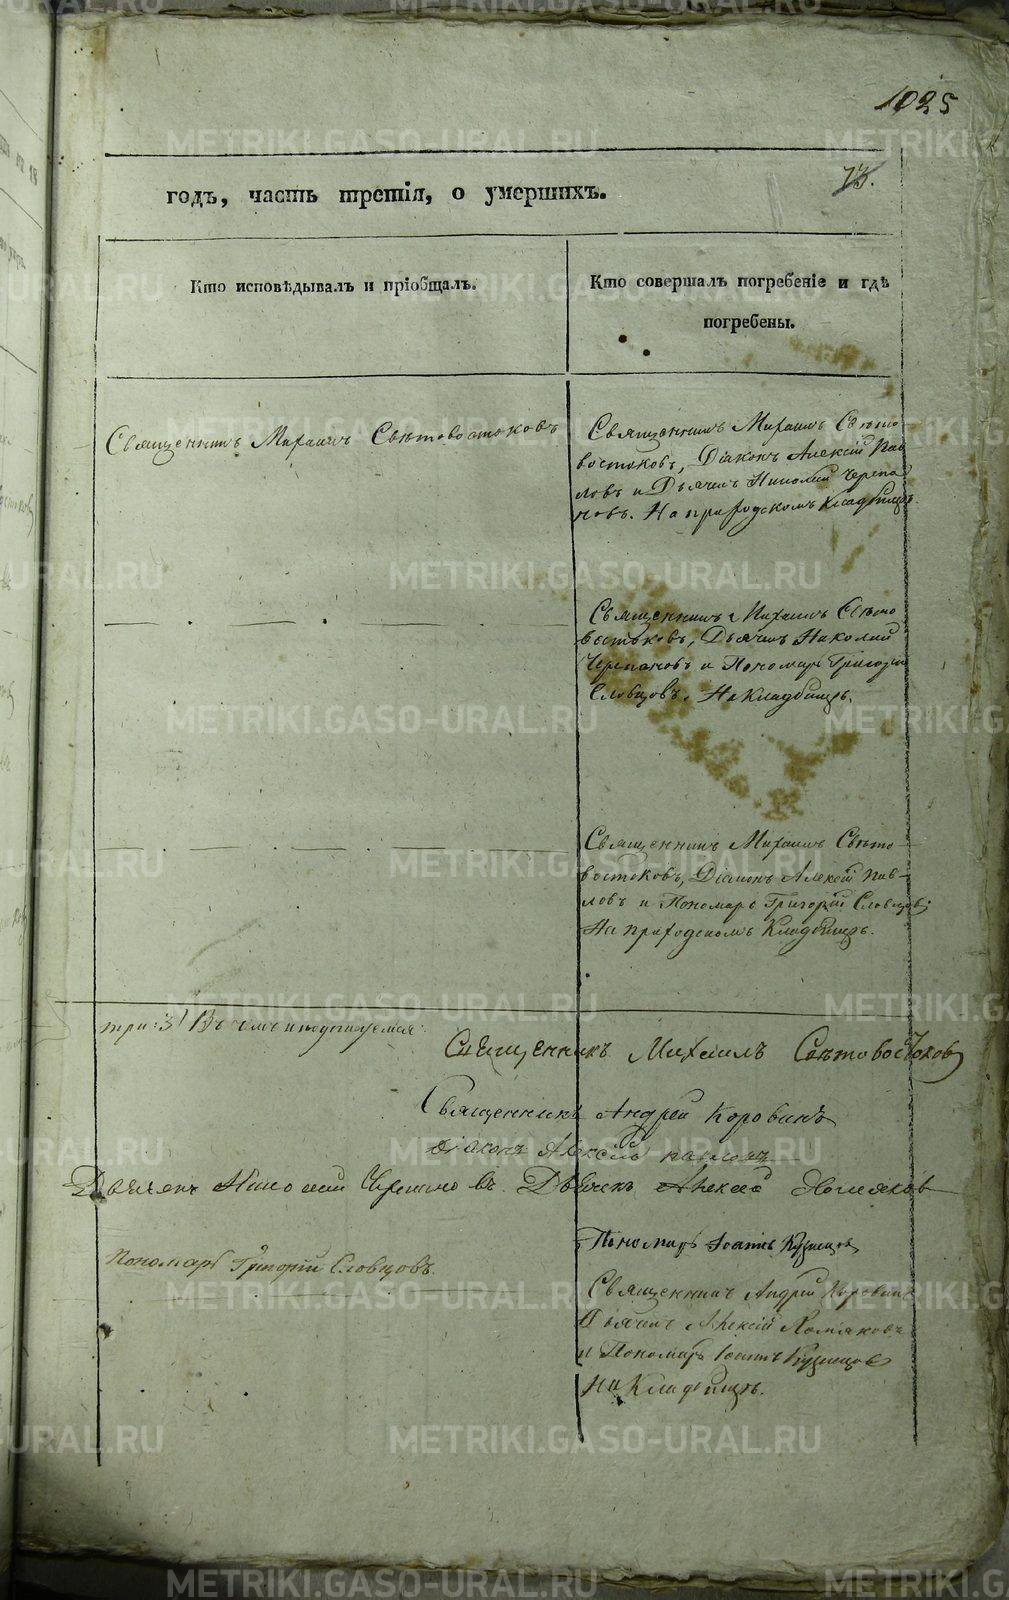 1025
73.
годъ, часть третія, о умершихъ.
Кто исповѣдывалъ и пріобщалъ.
Кто совершалъ погребеніе и гдѣ
погребены.
Священникъ Михаилъ Свѣтовостоковъ
Священникъ Михаилъ Свѣто
востоковъ, Діаконъ Алексій Пав
ловъ и Дьячекъ Николай Черепа
новъ. На приходскомъ кладбищѣ.
Священникъ Михаилъ Свѣто
востоковъ, Дьячекъ Николай
Черепановъ и Пономарь Григорій
Словцовъ. На кладбищѣ.
Священникъ Михаилъ Свѣто
востоковъ, Діаконъ Алексій Пав-
ловъ и Пономарь Григорій Словцовъ
На приходскомъ Кладбищѣ.
три: 3/ Въ чемъ и подписуемся:
Священникъ Михаилъ Свѣтовостоковъ
Священникъ Андрей Коровинъ
Діаконъ Алексѣй Павловъ
Дьячекъ Николай Черепановъ. Дьячекъ Алексѣй Хомяковъ
Пономарь Іоаннъ Кузнецовъ
Пономарь Григорій Словцовъ.
Священникъ Андрей Коровинъ
Дьячекъ Алексій Хомяковъ
и Пономарь Іоаннъ Кузнецовъ
На Кладбищѣ.
METRIKI.GASO-URAL.RU